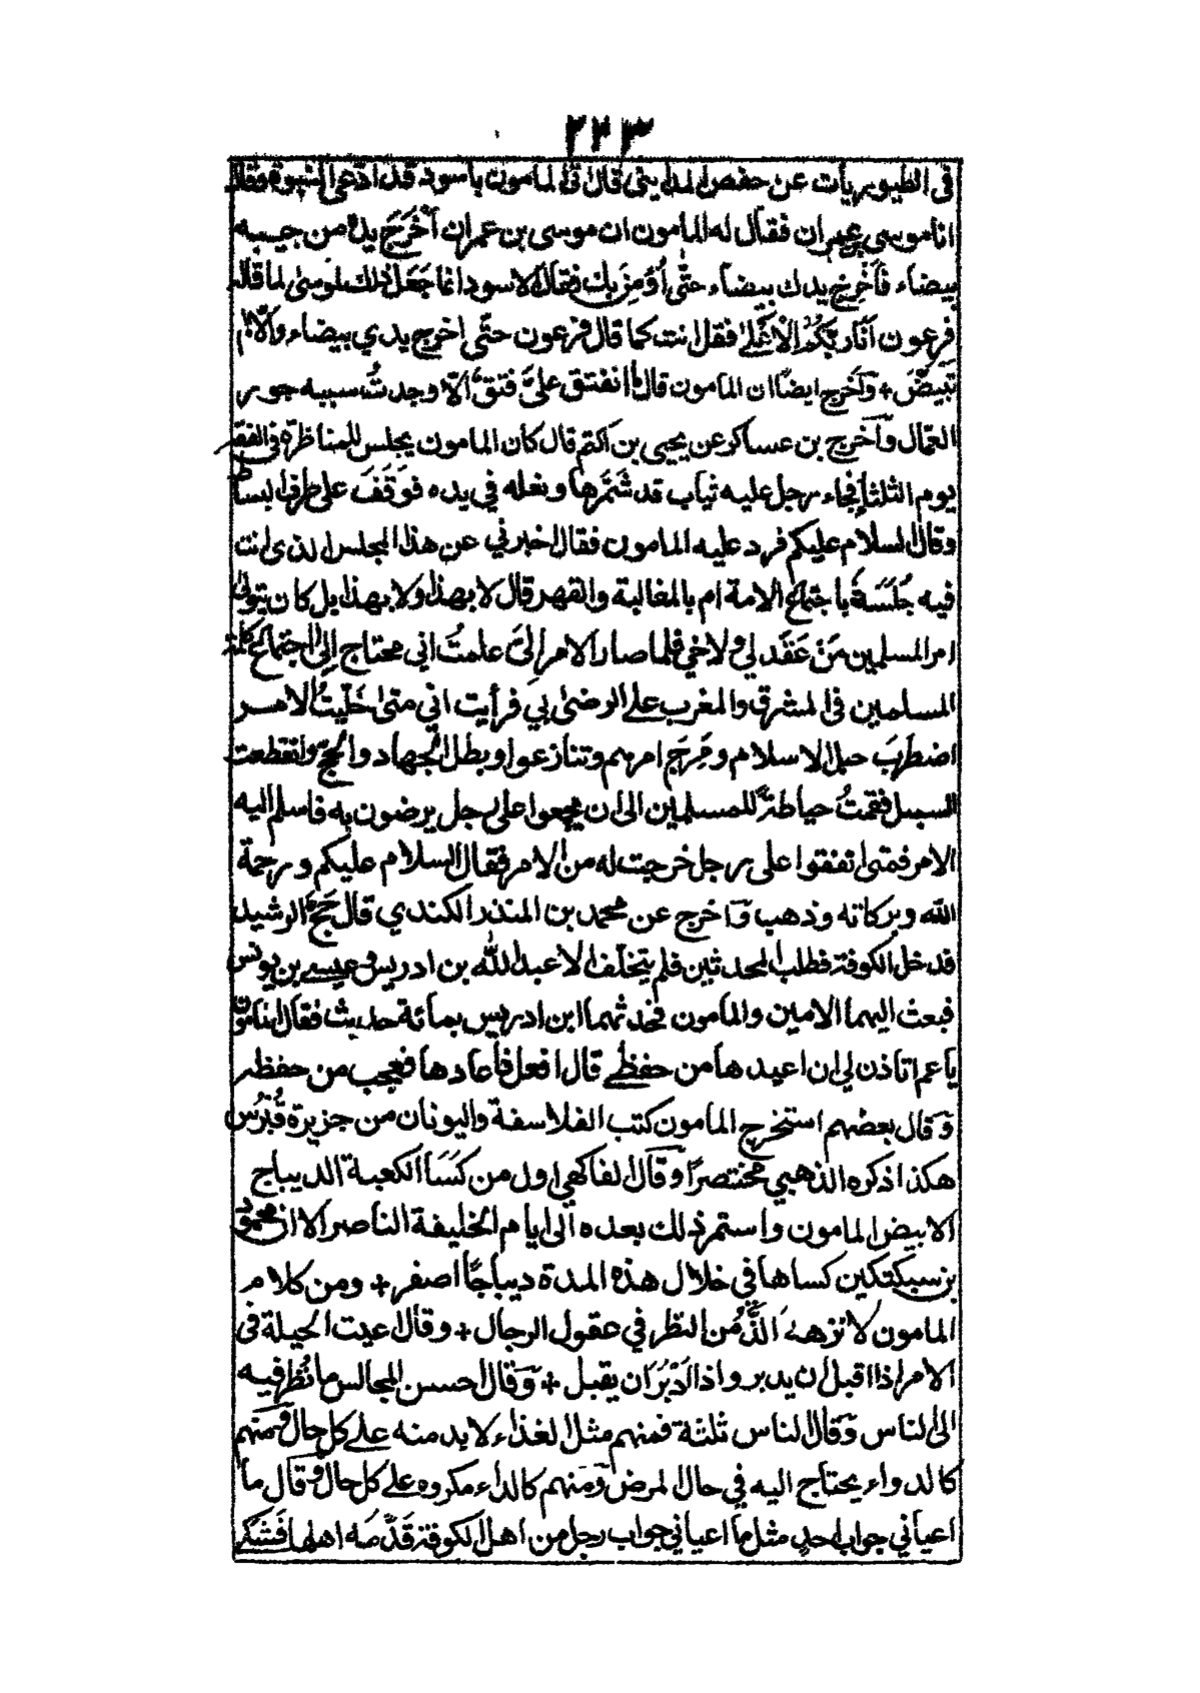 ٢٢٣
في الطيوريات عن حفص المدايني قال اتي المامون باسود قد ادّعى النبوة وقال
انا موسى بن عمران فقال له المامون ان موسى بن عمران اَخْرَجَ يدهٗ من جيبه
بيضاء فَأَخْرِج يدك بيضاء حتّٰى أُؤمِنَ بك فقال الاسود انما جعل ذلك لموسى لما قال له
فِرعون اَنَا رَبُّكُمُ الْاَعْلىٰ فقل انت كما قال فرعون حتّى اخرج يدي بيضاء والّا لم
تَبيضَّ + وَاَخرج ايضًا ان المامون قال ما انفتق عليَّ فتقٌ الّا وجدتُ سببه جور
العمّال وَاَخرج بن عساكر عن يحيى بن اكثم قال كان المامون يجلس للمناظرة في الفقه
يوم الثلثاء فجاء رجل عليه ثياب قد شَمَّرها ونعله في يده فوَقَفَ على طرف البساط
وقال السلام عليكم فرد عليه المامون فقال اخبرني عن هذا المجلس الذى انت
فيه جُلَسَةٌ باجتماع الامة ام بالمغالبة والقهر قال لا بهذا ولا بهذا بل كان يتولى
امر المسلمين مَنْ عَقَد لي ولاخي فلما صار الامر اِلَيَّ علمتُ اني محتاج اِلى اجتماع كلمة
المسلمين في المشرق والمغرب على الرضى بي فرأيت اني متى خَلَّيتُ الامر
اضطَرَبَ حبل الاسلام ومَرِجَ امرهم وتنازعوا وبطل الجهاد والحجّ وانقطعت
السبل فقمتُ حياطةً للمسلمين الى ان يجمعوا على رجل يرضون به فاسلم اليه
الامر فمتى اتفقوا على رجل خرجت له من الامر فقال السلام عليكم ورحمة
الله وبركاته وذهب وَاَخرج عن محمد بن المنذر الكندي قال حَجَّ الرشيد
فدخل الكوفة فطلب المحدثين فلم يتخلّف الا عبد الله بن ادريس وعيسى بن يونس
فبعث اليهما الامين والمامون فحدثهما ابن ادريس بمائة حديث فقال المامون
يا عم اتاذن لي ان اعيدها من حفظي قال افعل فاعادها فعجب من حفظه
وَقال بعضهم استخرج المامون كتب الفلاسفة واليونان من جزيرة قُبْرُس
هكذا ذكره الذهبي مختصرًا وَقال الفاكهي اول من كَسَا الكعبة الديباج
الابيض المامون واستمر ذلك بعده الى ايام الخليفة الناصر الا ان محمود
بن سبكتكين كساها في خلال هذه المدة ديباجًا اصفر + ومن كلام
المامون لا نزهة اَلَذُّ من النظر في عقول الرجال + وقال اعيت الحيلة في
الامر اذا اقبل ان يدبر واذا اَدْبَرَ ان يقبل + وَقال حسن المجالس ما نُظر فيه
الى الناس وَقال الناس ثلثة فمنهم مثل الغذاء لا بد منه على كل حال ومنهم
كالدواء يحتاج اليه في حال المرض وَمنهم كالداء مكروه على كل حال وَقال ما
اعياني جواب احد مثل ما اعياني جواب رجل من اهل الكوفة قَدَّمَه اهلها فَشَكى